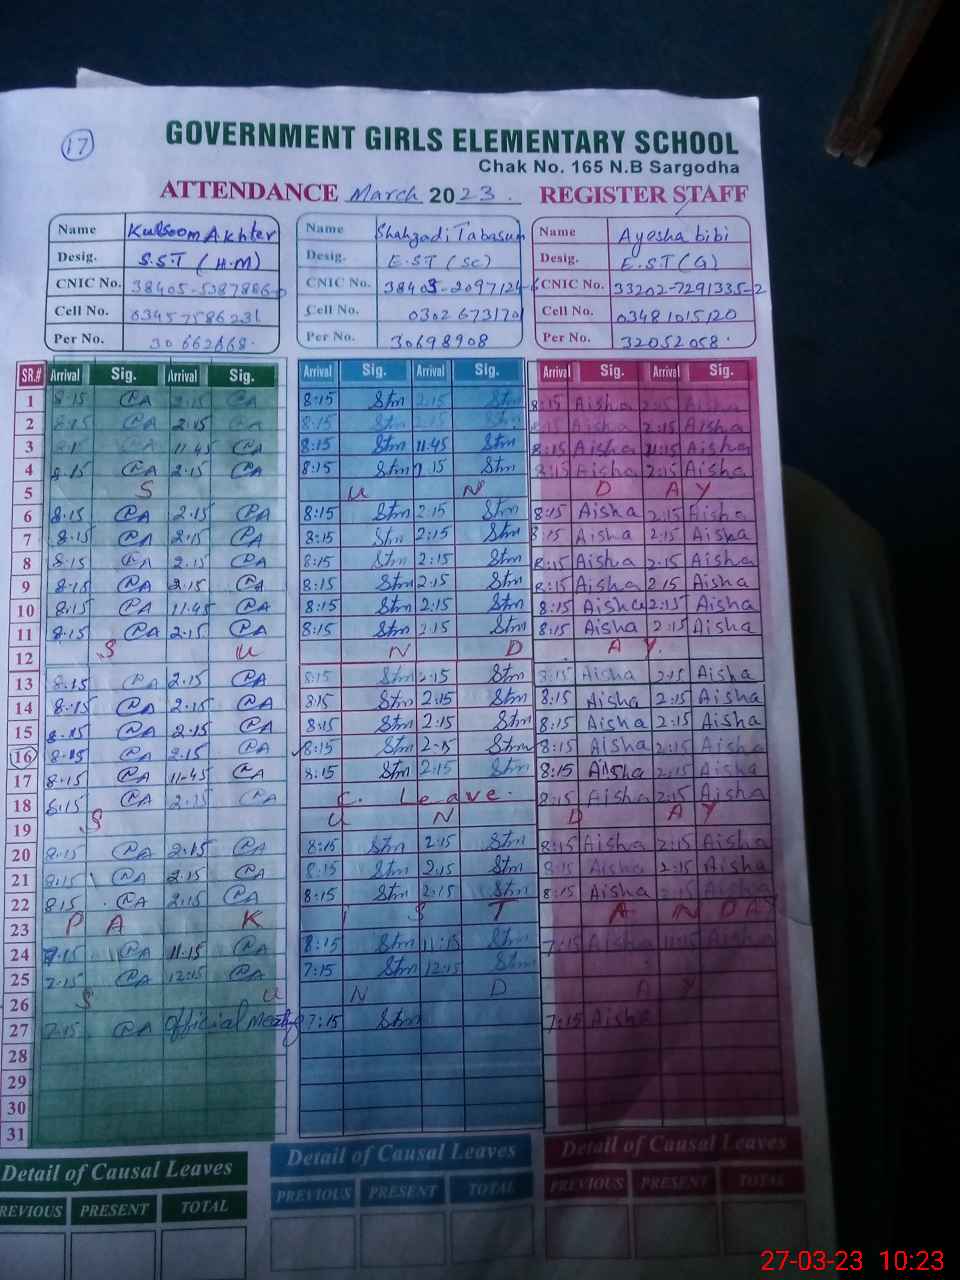 17
GOVERNMENT GIRLS ELEMENTARY SCHOOL
Chak No. 165 N.B Sargodha
ATTENDANCE March 2023. REGISTER STAFF
Name Kulsoom Akhter Name Shahzadi Tabasum Name Ayesha bibi
Desig. S.S.T (H.M) Desig. E.S.T (SC) Desig. E.S.T (G)
CNIC No. CNIC No. CNIC No. 33202-7291335-2
Cell No. 03457586231 Cell No. 0302 6731701 Cell No. 03481015120
Per No. 30662668. Per No. 30698908 Per No. 32052058.
SR.# Arrival Sig. Arrival Sig. Arrival Sig. Arrival Sig. Arrival Sig. Arrival Sig.
1 8:15 CA 2:15 CA 8:15 Stm 2:15 Stm 8:15 Aisha 2:15 Aisha
2 8:15 CA 2:15 CA 8:15 Stm 2:15 Stm 8:15 Aisha 2:15 Aisha
3 8:15 CA 11:45 CA 8:15 Stm 11:45 Stm 8:15 Aisha 11:15 Aisha
4 8:15 CA 2:15 CA 8:15 Stm 2:15 Stm 8:15 Aisha 2:15 Aisha
5 S U N D A Y
6 8:15 CA 2:15 CA 8:15 Stm 2:15 Stm 8:15 Aisha 2:15 Aisha
7 8:15 CA 2:15 CA 8:15 Stm 2:15 Stm 8:15 Aisha 2:15 Aisha
8 8:15 CA 2:15 CA 8:15 Stm 2:15 Stm 8:15 Aisha 2:15 Aisha
9 8:15 CA 2:15 CA 8:15 Stm 2:15 Stm 8:15 Aisha 2:15 Aisha
10 8:15 CA 11:45 CA 8:15 Stm 2:15 Stm 8:15 Aisha 2:15 Aisha
11 8:15 CA 2:15 CA 8:15 Stm 2:15 Stm 8:15 Aisha 2:15 Aisha
12 S U N D A Y.
13 8:15 CA 2:15 CA 8:15 Stm 2:15 Stm 8:15 Aisha 2:15 Aisha
14 8:15 CA 2:15 CA 8:15 Stm 2:15 Stm 8:15 Aisha 2:15 Aisha
15 8:15 CA 2:15 CA 8:15 Stm 2:15 Stm 8:15 Aisha 2:15 Aisha
16 8:15 CA 2:15 CA 8:15 Stm 2:15 Stm 8:15 Aisha 2:15 Aisha
17 8:15 CA 11:45 CA 8:15 Stm 2:15 Stm 8:15 Aisha 2:15 Aisha
18 8:15 CA 2:15 CA C. Leave. 8:15 Aisha 2:15 Aisha
19 S U N D A Y
20 8:15 CA 2:15 CA 8:15 Stm 2:15 Stm 8:15 Aisha 2:15 Aisha
21 8:15 CA 2:15 CA 8:15 Stm 2:15 Stm 8:15 Aisha 2:15 Aisha
22 8:15 CA 2:15 CA 8:15 Stm 2:15 Stm 8:15 Aisha 2:15 Aisha
23 P A K I S T A N DAY
24 7:15 CA 11:15 CA 8:15 Stm 11:15 Stm 7:15 Aisha 11:15 Aisha
25 7:15 CA 12:15 CA 7:15 Stm 12:15 Stm
26 S U N D A Y
27 7:15 CA Official Meeting 7:15 Stm 7:15 Aisha
28
29
30
31
Detail of Causal Leaves Detail of Causal Leaves Detail of Causal Leaves
REVIOUS PRESENT TOTAL PREVIOUS PRESENT TOTAL PREVIOUS PRESENT TOTAL
27-03-23 10:23